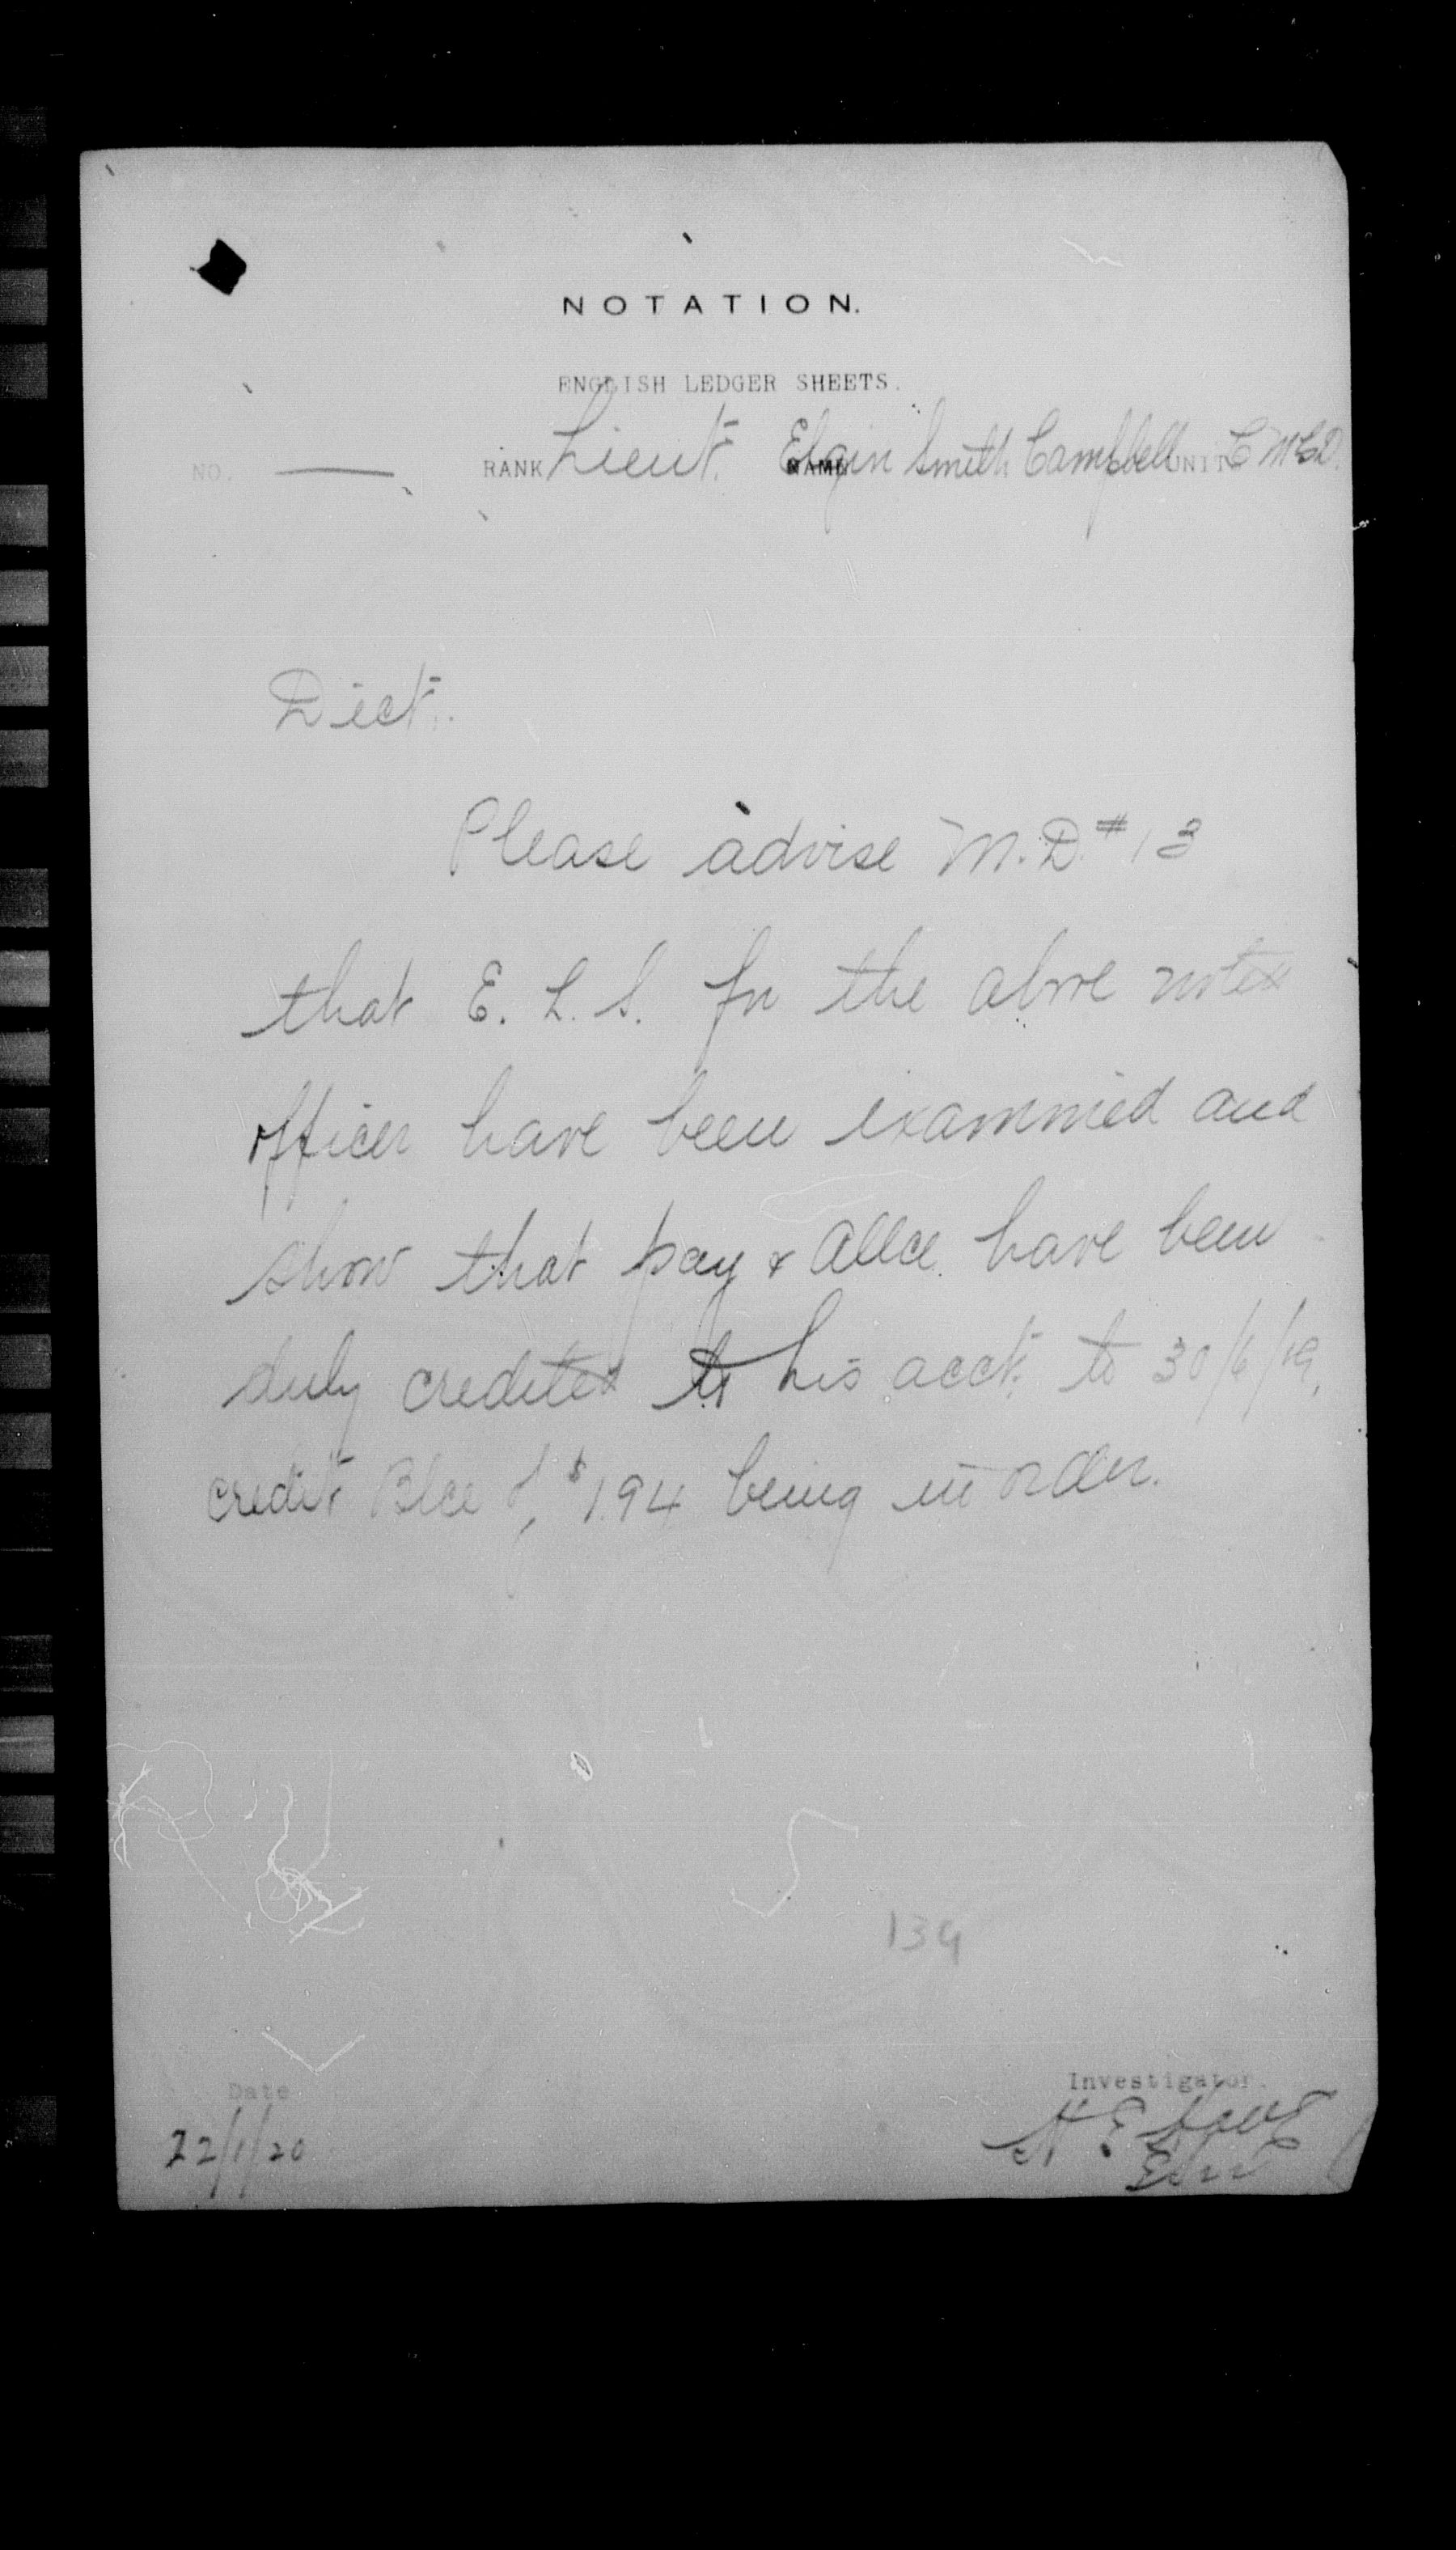 NOTATION.
ENGLISH LEDGER SHEETS.
NO. — RANK Lieut. NAME Elgin Smith Campbell UNIT
Dict.
Please advise M.D. #13
that E. L. S. for the above noted
officer have been examined and
show that pay & Allce have been
duly credited to his acct. to 30/6/19,
credit Blce of $1.94 being in order.
139
Date Investigator.
22/1/20 H E